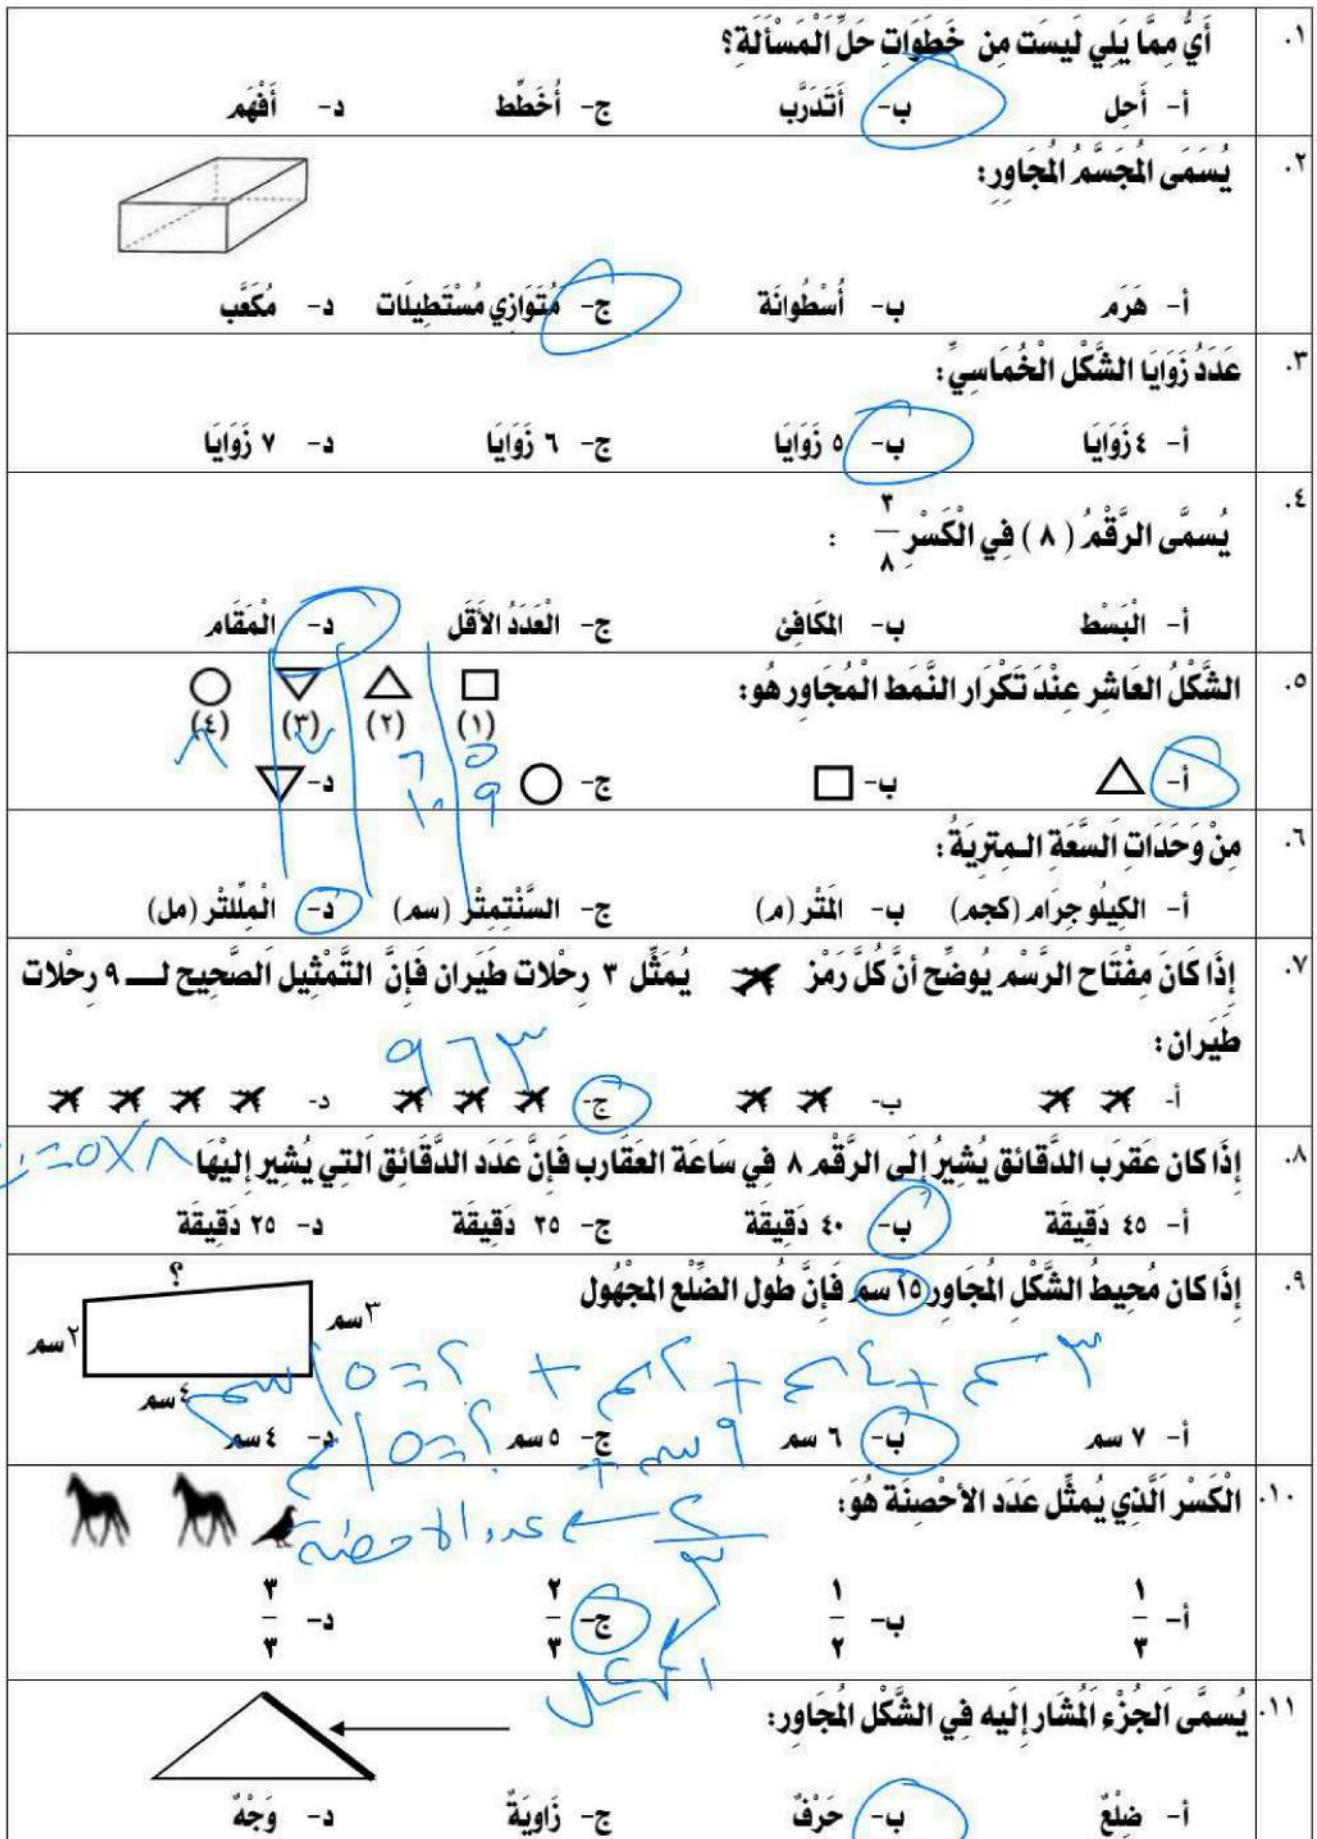 ١. أَيُّ مِمَّا يَلِي لَيسَت مِن خَطَوَاتِ حَلِّ الْمَسْأَلَةِ؟
أ- أَحِل ب- أَتَدَرَّب ج- أُخَطِّط د- أَفْهَم
٢. يُسَمَى الْمُجَسَّمُ الْمُجَاوِرِ:
أ- هَرَم ب- أُسْطُوانَة ج- مُتَوَازِي مُسْتَطِيلَات د- مُكَعَّب
٣. عَدَدُ زَوَايَا الشَّكْل الْخُمَاسِيِّ:
أ- ٤ زَوَايَا ب- ٥ زَوَايَا ج- ٦ زَوَايَا د- ٧ زَوَايَا
٤. يُسمَّى الرَّقْمُ ( ٨ ) فِي الْكَسْرِ ٣/٨ :
أ- الْبَسْط ب- المَكَافِئ ج- الْعَدَدُ الأَقَل د- الْمَقَام
٥. الشَّكْلُ العَاشِر عِنْدَ تَكْرَار النَّمَط الْمُجَاوِر هُو:
(١) (٢) (٣) (٤)
٥ ٦ ٧ ٨
أ- △ ب- □ ج- ○ د- ▽
٩ ١٠
٦. مِنْ وَحَدَاتِ السَّعَةِ الـمِترِيَةُ:
أ- الكِيلُو جِرَام (كجم) ب- المَتْر (م) ج- السَّنْتِمِتْر (سم) د- الْمِلِّلتْر (مل)
٧. إِذَا كَانَ مِفْتَاح الرَّسْم يُوضِّح أنَّ كُلَّ رَمْز يُمَثِّل ٣ رِحْلات طَيَران فَإِنَّ التَّمْثِيل الصَّحِيح لـــ ٩ رِحْلات
طَيَران:
٣ ٦ ٩
أ- ب- ج- د-
٨. إِذَا كان عَقرَب الدَّقائق يُشِيرُ إِلَى الرَّقْم ٨ فِي سَاعَة العَقَارِب فَإِنَّ عَدَد الدَّقَائِق التِي يُشِير إِليْهَا ٨×٥=٤٠
أ- ٤٥ دَقِيقَة ب- ٤٠ دَقِيقَة ج- ٣٥ دَقِيقَة د- ٢٥ دَقِيقَة
٩. إِذَا كان مُحِيطُ الشَّكْلِ الْمُجَاوِر ١٥ سم فَإِنَّ طُول الضِّلْع المَجْهُول
؟
٣سم
٢سم
٤سم
٣سم + ٤سم + ٢سم + ؟ = ١٥سم
أ- ٧ سم ب- ٦ سم ج- ٥ سم د- ٤ سم
٩سم + ؟ = ١٥سم
١٠. الْكَسْر الَّذِي يُمثِّل عَدَد الأحْصِنَة هُوَ:
٢/٣ ← عدد الاحصنة
أ- ١/٣ ب- ١/٢ ج- ٢/٣ د- ٣/٣
١١. يُسمَّى الجُزْء المُشَار إِلَيه فِي الشَّكْل المُجَاوِر:
أ- ضِلْعٌ ب- حَرْفٌ ج- زَاوِيَةٌ د- وَجْهٌ